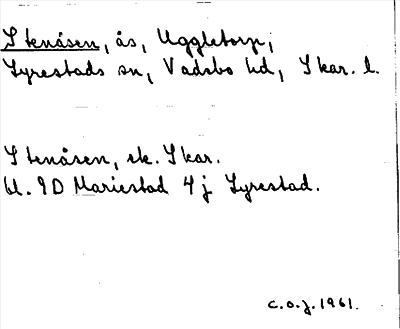 Stenåsen, ås, Uggletorp,
Lyrestads sn, Vadsbo hd, Skar. l.
Stenåsen, ek. Skar.
bl. 9D Mariestad 4j Lyrestad.
c.o.j. 1961.